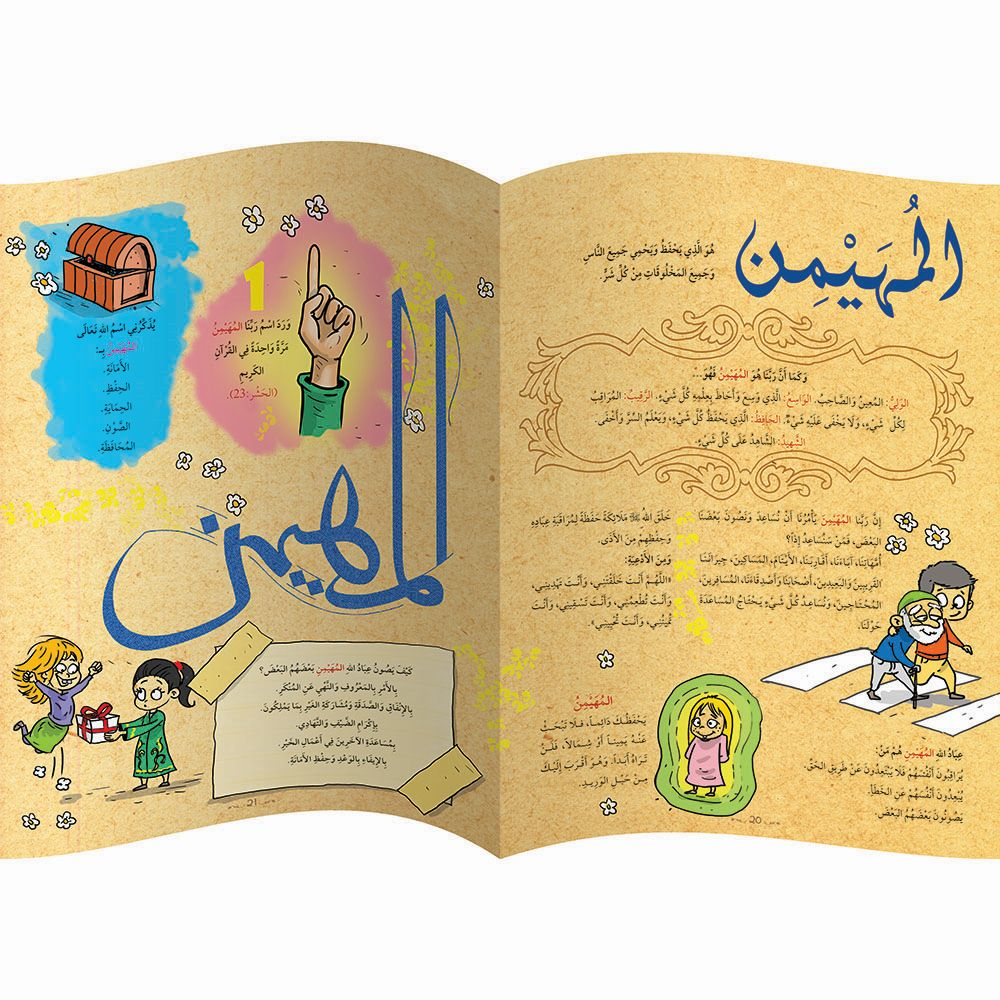 المُهَيْمِن
هُوَ الَّذِي يَحْفَظُ وَيَحْمِي جَمِيعَ النَّاسِ
وَجَمِيعَ المَخْلُوقَاتِ مِنْ كُلِّ شَرٍّ
وَكَمَا أَنَّ رَبَّنَا هُوَ المُهَيْمِنُ فَهُوَ...
الوَلِيُّ: المُعِينُ وَالصَّاحِبُ. الوَاسِعُ: الَّذِي وَسِعَ وَأَحَاطَ بِعِلْمِهِ كُلَّ شَيْءٍ. الرَّقِيبُ: المُرَاقِبُ
لِكُلِّ شَيْءٍ، وَلَا يَخْفَى عَلَيْهِ شَيْءٌ. الحَافِظُ: الَّذِي يَحْفَظُ كُلَّ شَيْءٍ، وَيَعْلَمُ السِّرَّ وَأَخْفَى.
الشَّهِيدُ: الشَّاهِدُ عَلَى كُلِّ شَيْءٍ.
إِنَّ رَبَّنَا المُهَيْمِنَ يَأْمُرُنَا أَنْ نُسَاعِدَ وَنَصُونَ بَعْضَنَا
البَعْضَ، فَمَنْ سَنُسَاعِدُ إِذَاً؟
أُمَّهَاتِنَا، آبَاءَنَا، أَقَارِبَنَا، الأَيْتَامَ، المَسَاكِينَ، جِيرَانَنَا
القَرِيبِينَ وَالبَعِيدِينَ، أَصْحَابَنَا وَأَصْدِقَاءَنَا، المُسَافِرِينَ،
المُحْتَاجِينَ، وَنُسَاعِدُ كُلَّ شَيْءٍ يَحْتَاجُ المُسَاعَدَةَ
حَوْلَنَا.
خَلَقَ اللهُ ﷻ مَلَائِكَةً حَفَظَةً لِمُرَاقَبَةِ عِبَادِهِ
وَحِفْظِهِمْ مِنَ الأَذَى.
وَمِنَ الأَدْعِيَةِ:
«اللَّهُمَّ أَنْتَ خَلَقْتَنِي، وَأَنْتَ تَهْدِينِي،
وَأَنْتَ تُطْعِمُنِي، وَأَنْتَ تَسْقِينِي، وَأَنْتَ
تُمِيتُنِي، وَأَنْتَ تُحْيِينِي».
المُهَيْمِنُ
يَحْفَظُكَ دَائِماً، فَلَا تَبْحَثْ
عَنْهُ يَمِيناً أَوْ شِمَالاً، فَلَنْ
تَرَاهُ أَبَداً. وَهُوَ أَقْرَبُ إِلَيْكَ
مِنْ حَبْلِ الوَرِيدِ.
عِبَادُ اللهِ المُهَيْمِنِ هُمْ مَنْ:
يُرَاقِبُونَ أَنْفُسَهُمْ فَلَا يَبْتَعِدُونَ عَنْ طَرِيقِ الحَقِّ.
يُبْعِدُونَ أَنْفُسَهُمْ عَنِ الخَطَأِ.
يَصُونُونَ بَعْضَهُمُ البَعْضَ.
20
1
وَرَدَ اسْمُ رَبِّنَا المُهَيْمِنُ
مَرَّةً وَاحِدَةً فِي القُرْآنِ
الكَرِيمِ
(الحَشْرِ:23).
يُذَكِّرُنِي اسْمُ اللهِ تَعَالَى
المُهَيْمِنُ بِـ:
الأَمَانَةِ.
الحِفْظِ.
الحِمَايَةِ.
الصَّوْنِ.
المُحَافَظَةِ.
المهيمن
كَيْفَ يَصُونُ عِبَادُ اللهِ المُهَيْمِنِ بَعْضَهُمُ البَعْضَ؟
بِالأَمْرِ بِالمَعْرُوفِ وَالنَّهْيِ عَنِ المُنْكَرِ.
بِالإِنْفَاقِ وَالصَّدَقَةِ وَمُشَارَكَةِ الغَيْرِ بِمَا يَمْلِكُونَ.
بِإِكْرَامِ الضَّيْفِ وَالتَّهَادِي.
بِمُسَاعَدَةِ الآخَرِينَ فِي أَعْمَالِ الخَيْرِ.
بِالإِيفَاءِ بِالوَعْدِ وَحِفْظِ الأَمَانَةِ.
21